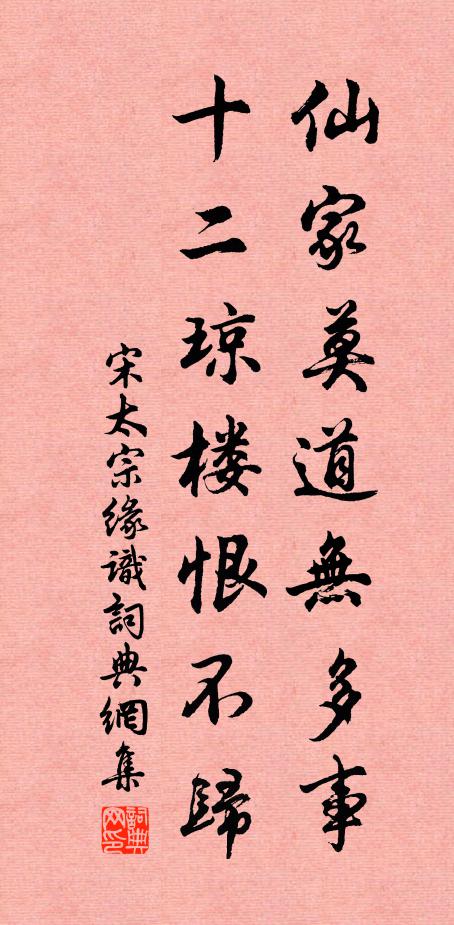 仙家莫道無多事
十二琼楼恨不歸
宋太宗緣識詞典網集
詞典
网印